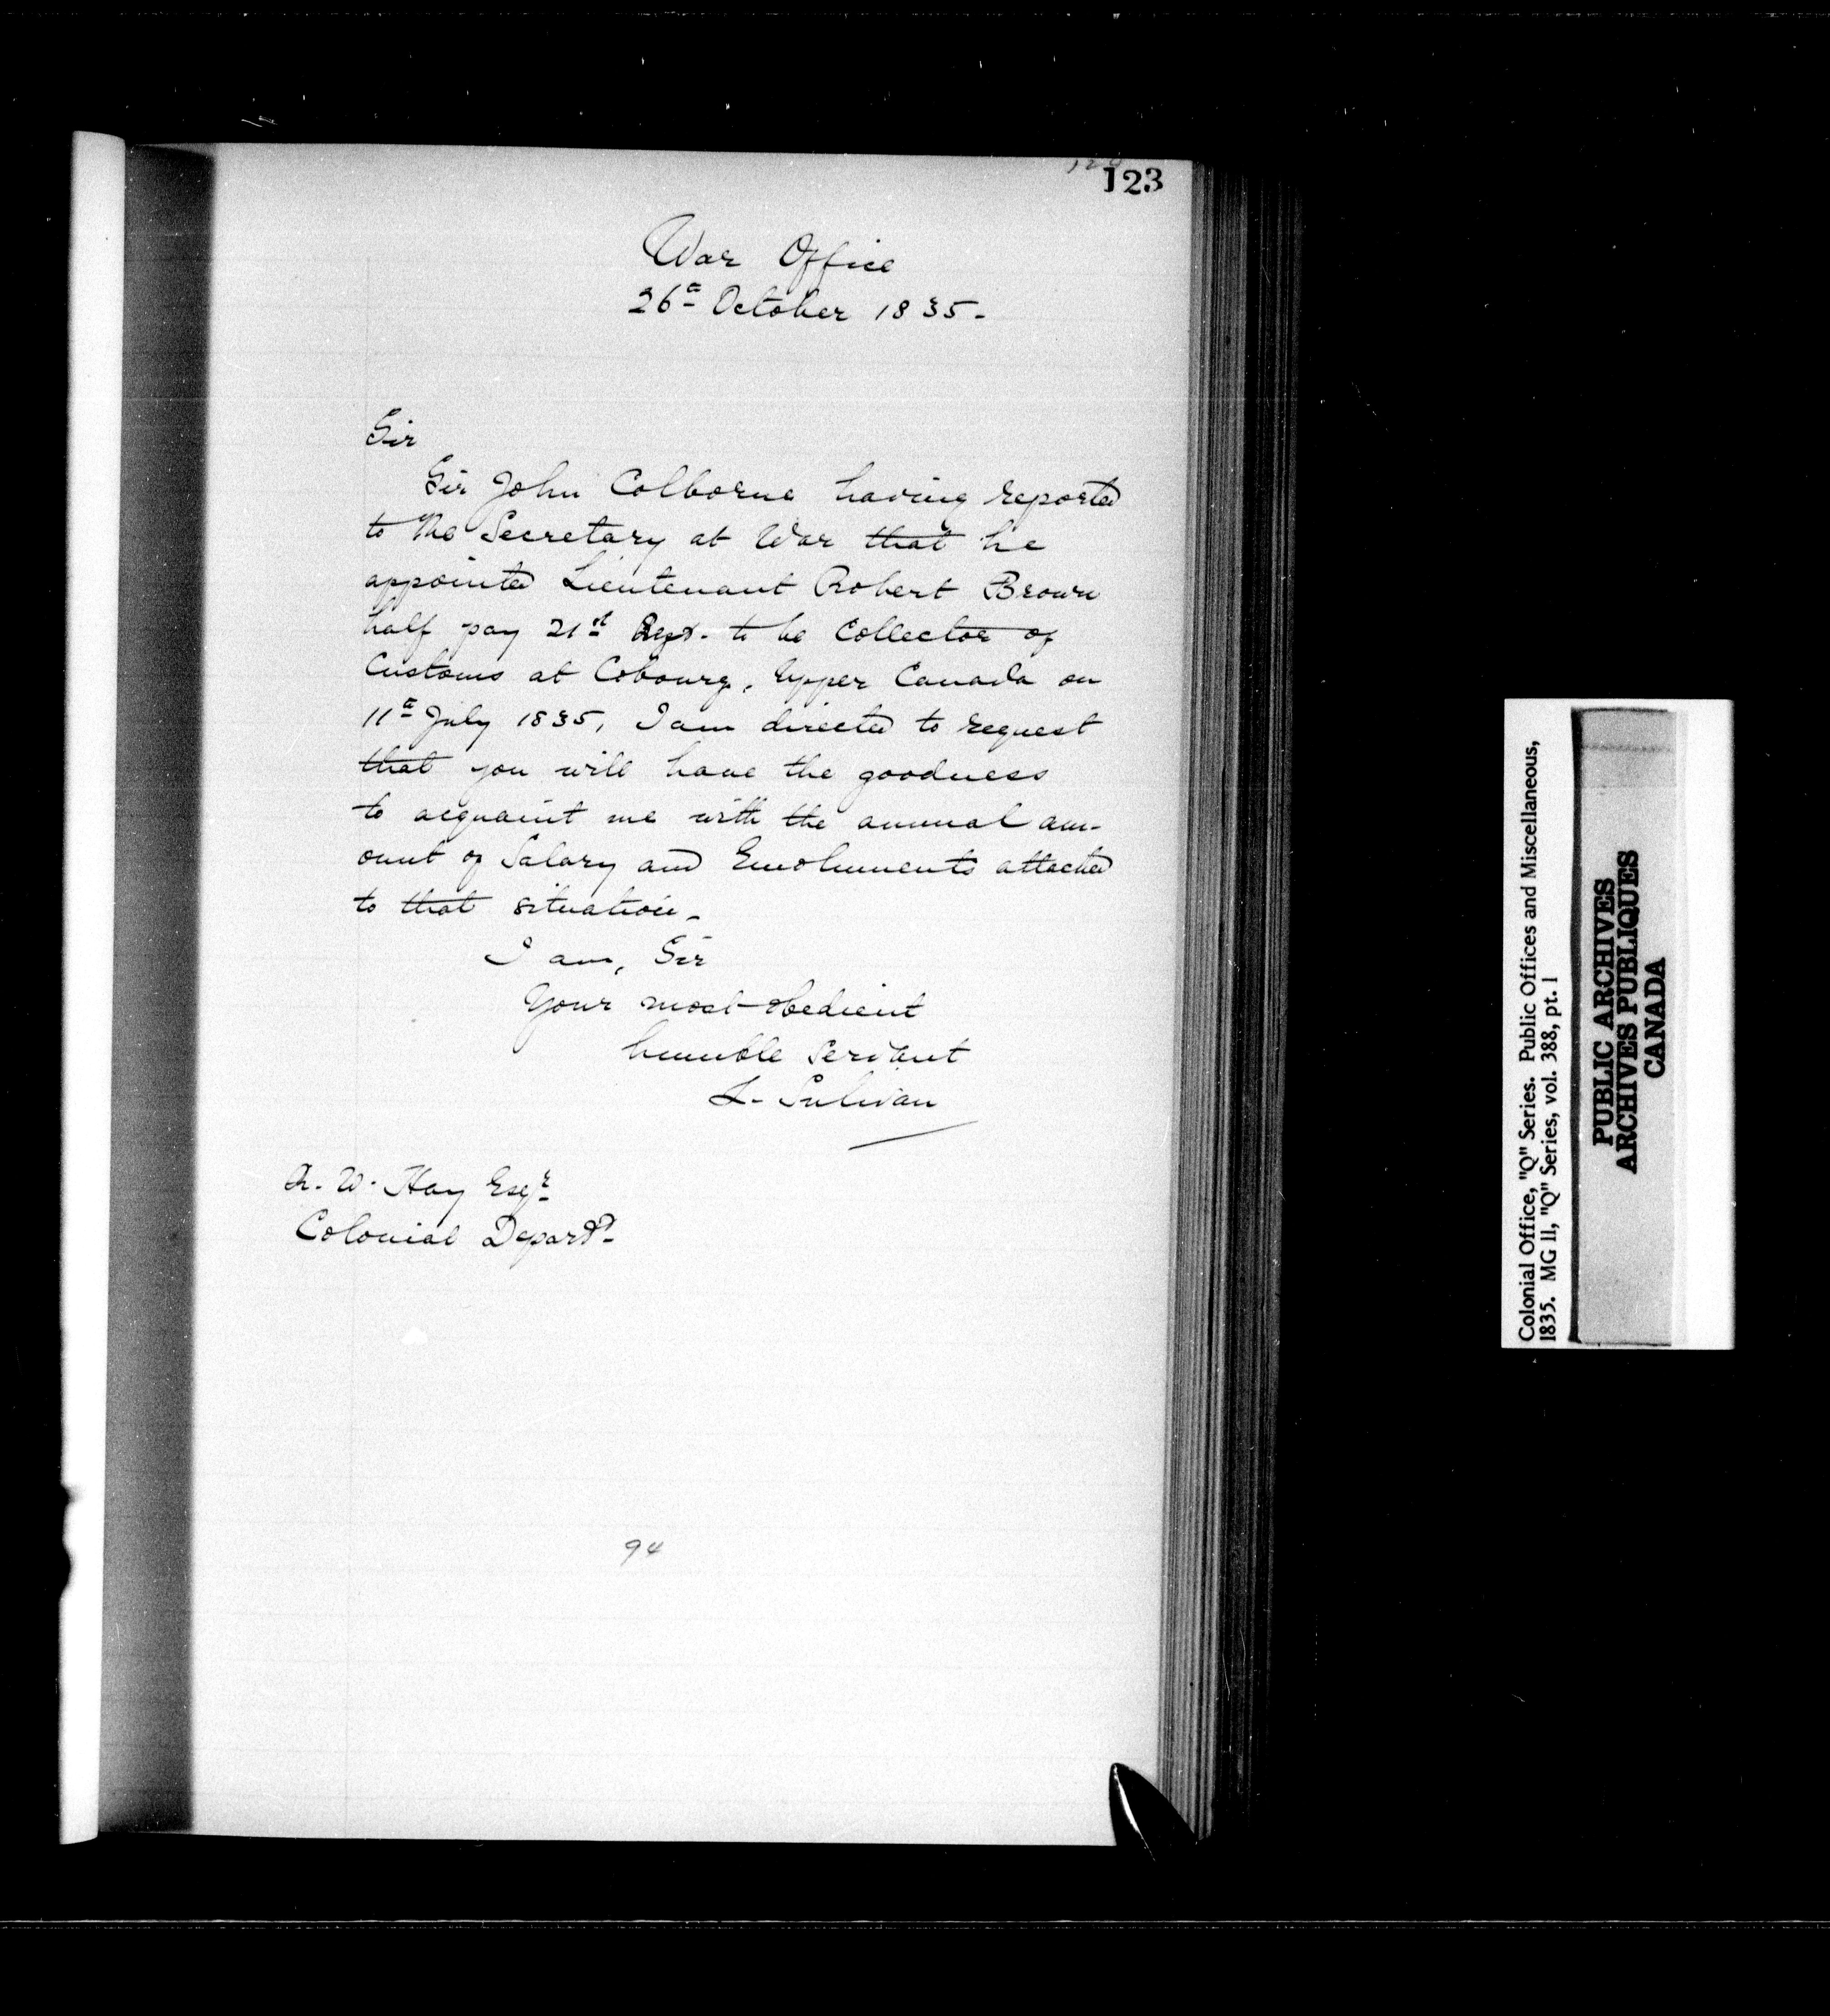 123
War Office
26th October 1835-
Sir
Sir John Colborne having reported
to the Secretary at War that he
appointed Lieutenant Robert Brown
half pay 21st Regt. to be Collector of
Customs at Cobourg, Upper Canada on
11th July 1835, I am directed to request
that you will have the goodness
to acquaint me with the annual am-
ount of Salary and Emoluments attached
to that situation-
I am, Sir
Your most obedient
humble servant
L. Sulivan
R. W. Hay Esqr
Colonial Depart.
94
Colonial Office, "Q" Series. Public Offices and Miscellaneous,
1835. MG 11, "Q" Series, vol. 388, pt. 1
PUBLIC ARCHIVES
ARCHIVES PUBLIQUES
CANADA